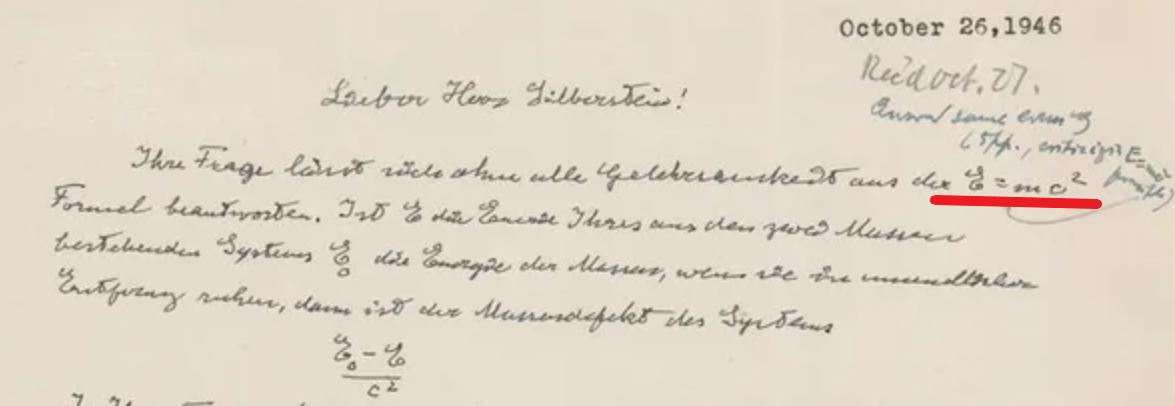 October 26, 1946
Rec'd Oct. 27.
Answ'd same evening
(5pp., criticizing E=mc²
Lieber Herr Silberstein!
Ihre Frage lässt sich ohne alle Gelehrsamkeit aus der E = mc²
Formel beantworten. Ist E die Energie Ihres aus den zwei Massen
bestehenden Systems E₀ die Energie der Massen, wenn sie in unendlicher
Entfernung ruhen, dann ist der Massendefekt des Systems
E₀ - E
c²